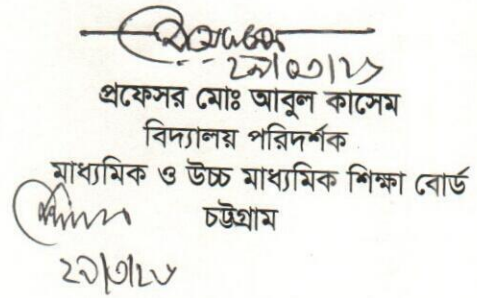 প্রফেসর মোঃ আবুল কাসেম
বিদ্যালয় পরিদর্শক
মাধ্যমিক ও উচ্চ মাধ্যমিক শিক্ষা বোর্ড
চট্টগ্রাম